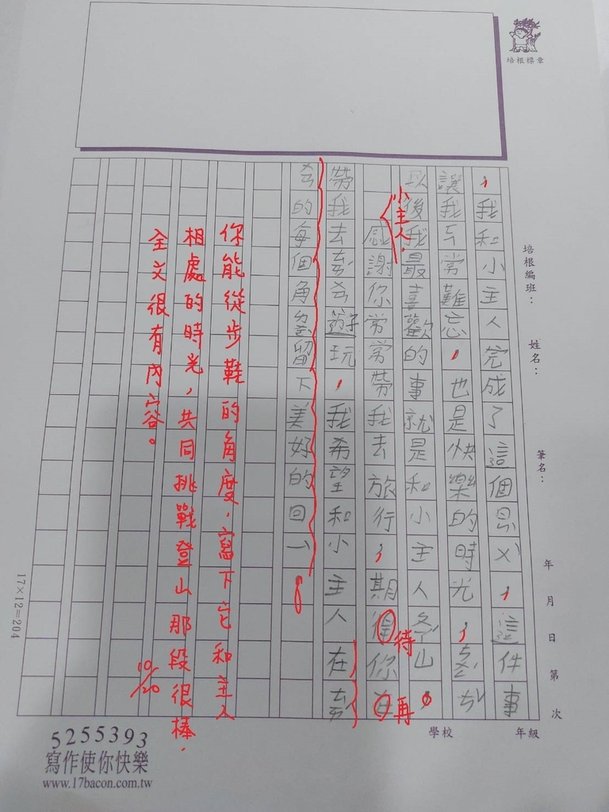 培根標章
培根編班： 姓名： 筆名： 年 月 日 第 次
學校 年級
，我和小主人完成了這個 ，這件事
讓我 常難忘，也是快樂的時光，
以後我最喜歡的事就是和小主人 山。
小主人，
感謝你常常帶我去旅行，期 你
待 再
帶我去 遊玩，我希望和小主人在
的每個角 留下美好的回
你能從步鞋的角度，寫下它和主人
相處的時光，共同挑戰登山那段很棒，
全文很有內容。
10/20
17×12=204
5255393
寫作使你快樂
www.17bacon.com.tw